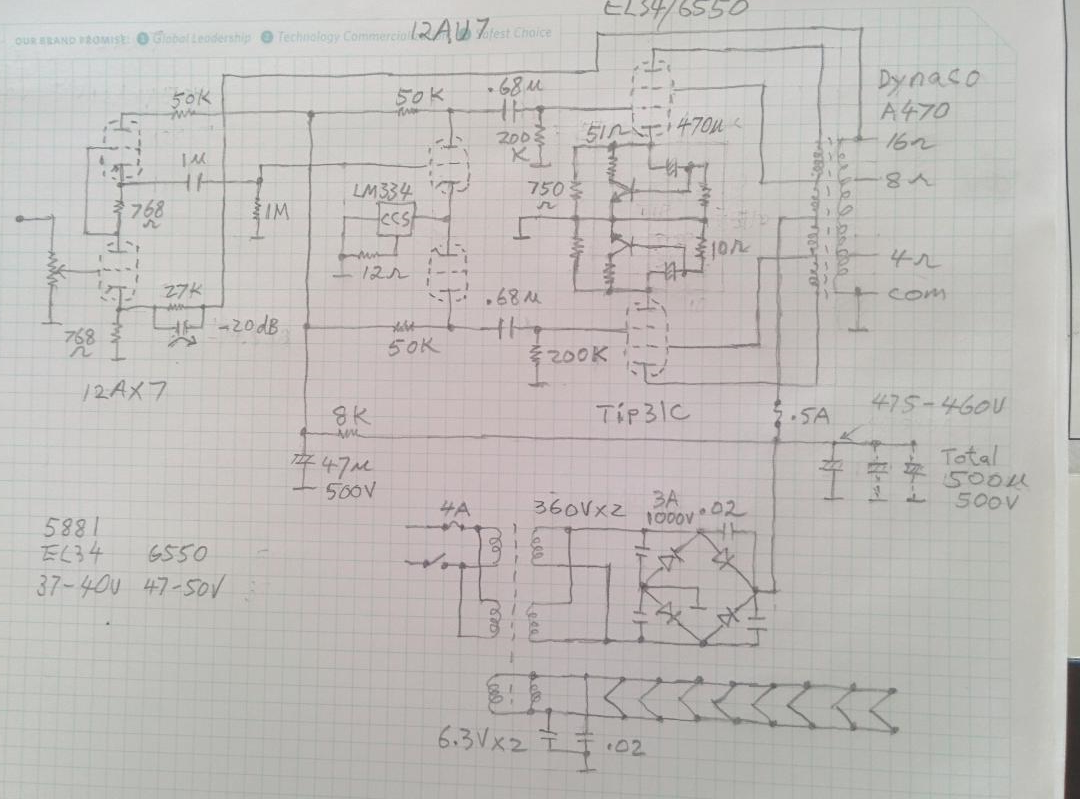 EL34/6550
12AU7
OUR BRAND PROMISE: 1 Global Leadership 2 Technology Commercial Safest Choice
50K
50K
.68µ
Dynaco
A470
16Ω
8Ω
4Ω
com
1µ
768
Ω
1M
LM334
CCS
12Ω
200
K
51Ω
470µ
750
Ω
10Ω
27K
-20dB
768
Ω
12AX7
50K
.68µ
200K
Tip31C
.5A
475-460V
8K
47µ
500V
Total
500µ
500V
4A
360V×2
3A
1000V
.02
5881
EL34 6550
37-40V 47-50V
6.3V×2
.02